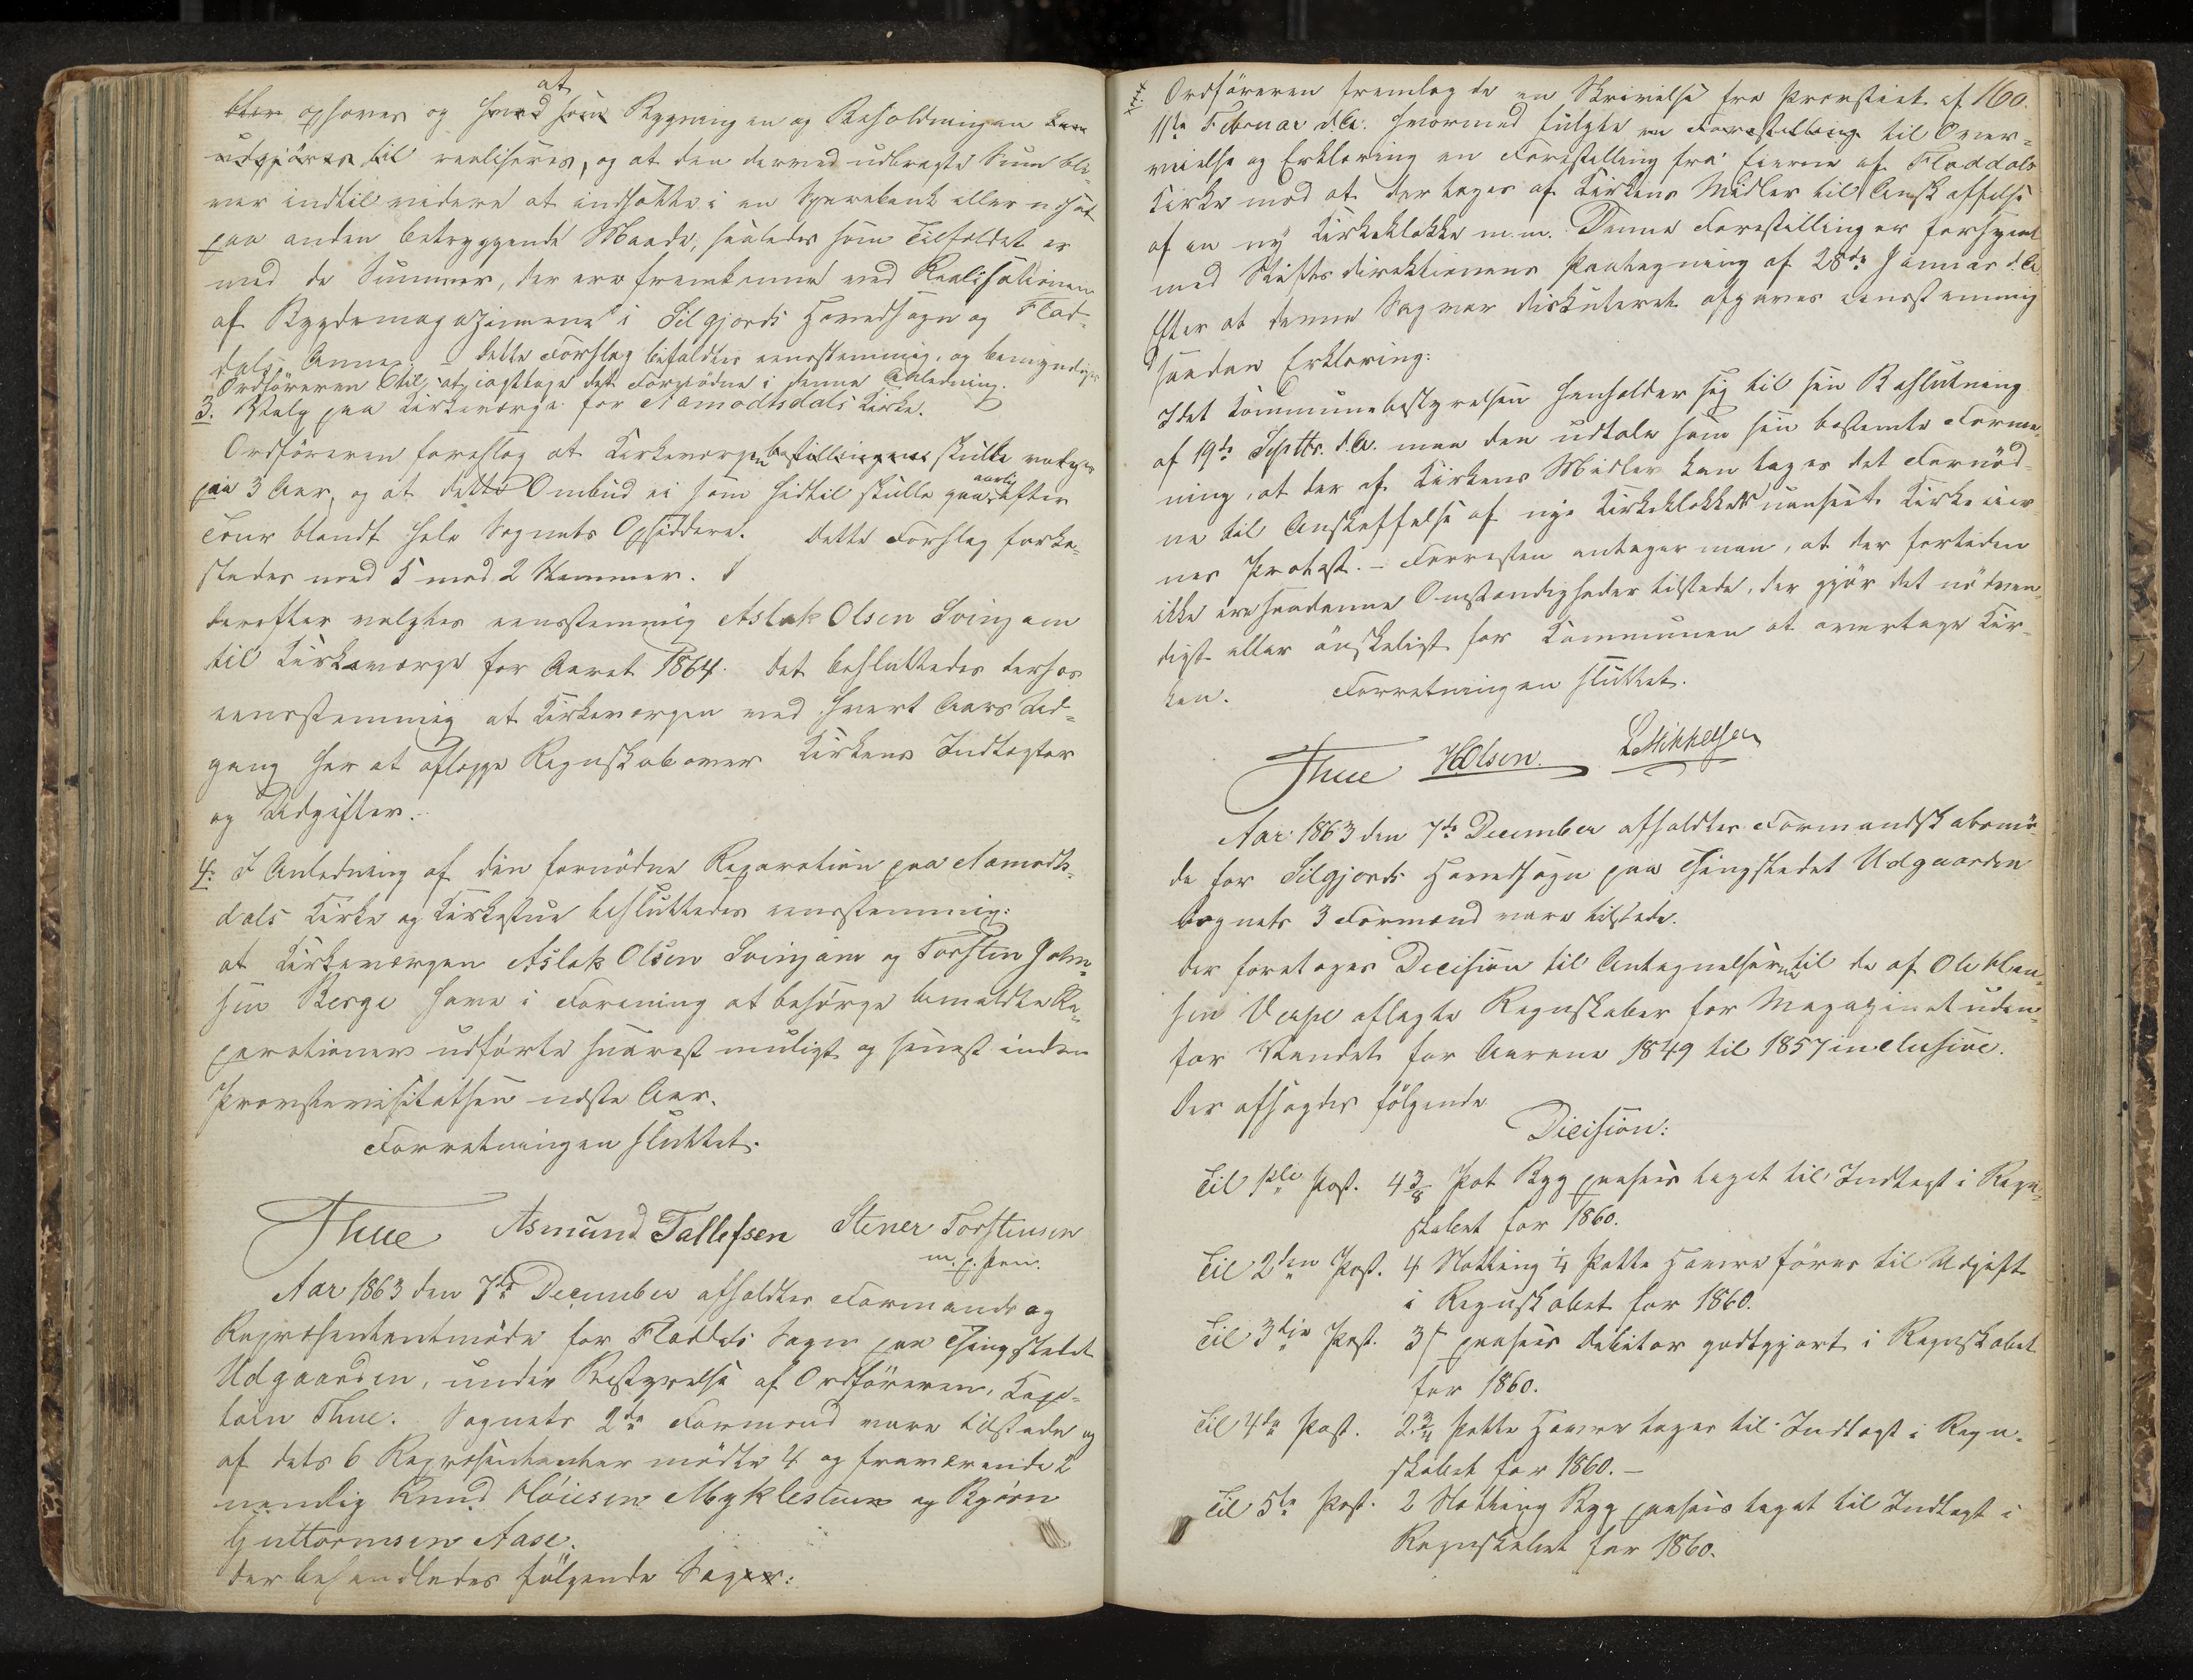 at
bliver ophæves og hvad som Bygningen og Beholdningen kan
udgjöres til realiseres, og at den derved udbragte Sum bli-
ver indtil videre at indsætte i en Sparebank eller udsat
paa anden betryggende Maade, saaledes som Tilfældet er
med de Summer, der ere fremkomne ved Realisationen
af Bygdemagazinene i Silgjords Hovedsogn og Flad-
dals Annex. – Dette Forslag bifaldtes eenstemmig, og bemyndiges
Ordföreren til at iagttage det Fornödne i denne Anledning.
3. Valg paa Kirkeværge for Aamodtsdals Kirke.
Ordföreren foreslog at Kirkeværgen bestillingens skulle vælges
paa 3 Aar, og at dette Ombud ei som hidtil skulle gaae aarlig efter
Tour blandt hele Sognets Opsiddere. Dette Forslag forka-
stedes med 5 mod 2 Stemmer.
Derefter valgtes eenstemmig Aslak Olsen Svingam
til Kirkeværge for Aaret 1864. Det besluttedes derhos
eenstemmig at Kirkeværgen ved hvert Aars Ud-
gang har at aflægge Regnskab over Kirkens Indtægter
og Udgifter.
4. I Anledning af den fornödne Reparation paa Aamodts-
dals Kirke og Kirkestue besluttedes eenstemmig:
at Kirkeværgen Aslak Olsen Svingam og Torsten John-
sen Berge have i Forening at besörge bemeldte Re-
parationer udförte snarest muligt og senest inden
Provstevisitatsen næste Aar.
Forretningen sluttet.
Thue Asmund Tallefsen Stener Torstensen
m. p. Pen.
Aar 1863 den 7de December afholdtes Formands og
Repræsentantmöde for Fladdals Sogn paa Thingstedet
Udgaarden, under Bestyrelse af Ordföreren, Capi-
tain Thue. Sognets 2de Formænd vare tilstede og
af dets 6 Repræsentanter mödte 4 og fraværende 2
nemlig Knud Höiesen Myklestuen og Bjørn
Guttormsen Aase.
Der behandledes fölgende Sager:
160.
1. Ordföreren fremlagde en Skrivelse fra Provstiet af
11te Februar d.A. hvormed fulgte en Forestilling til Over-
veielse og Erklæring en Forestilling fra Eierne af Fladdals
Kirke mod at der tages af Kirkens Midler til Anskaffelse
af en ny Kirkeklokke m.m. Denne Forestilling er forsynet
med Stiftsdirektionens Paategning af 28de Januar d.A.
Efter at denne Sag var diskuteret afgaves eenstemmig
saadan Erklæring:
Idet Kommunebestyrelsen henholder sig til sin Beslutning
af 19de Septbr. d.A. maa den udtale som sin bestemte Forme-
ning, at der af Kirkens Midler kan tages det Fornöd-
ne til Anskaffelse af nye Kirkeklokker uanseet Kirkeeier-
nes Protest. – Forresten antager man, at der fortiden
ikke ere saadanne Omstændigheder tilstede, der gjör det nödven-
digt eller önskeligt for Kommunen at overtage Kir-
ken. Forretningen sluttet.
Thue HOlsen. LMikkelsen
Aar 1863 den 7de December afholdtes Formandskabsmö-
de for Silgjords Hovedsogn paa Thingstedet Udgaarden
Sognets 3 Formænd vare tilstede.
Der foretoges Decision til Antegnelserne til de af Ole Han-
sen Verpe aflagte Regnskaber for Magazinet uden-
for Vandet for Aarene 1849 til 1857 inclusive.
Der afsagdes fölgende
Dicision:
Til 1ste Post. 4 3/8 Pot Byg paasees taget til Indtægt i Regn-
skabet for 1860.
Til 2den Post. 4 Sætting 1/4 Potte Havre föres til Udgift
i Regnskabet for 1860.
Til 3die Post. 3 s paasees Debitor godtgjort i Regnskabet
for 1860.
Til 4de Post. 2 3/4 Potte Havre tages til Indtægt i Regn-
skabet for 1860. –
Til 5te Post. 2 Sætting Byg paasees taget til Indtægt i
Regnskabet for 1860.